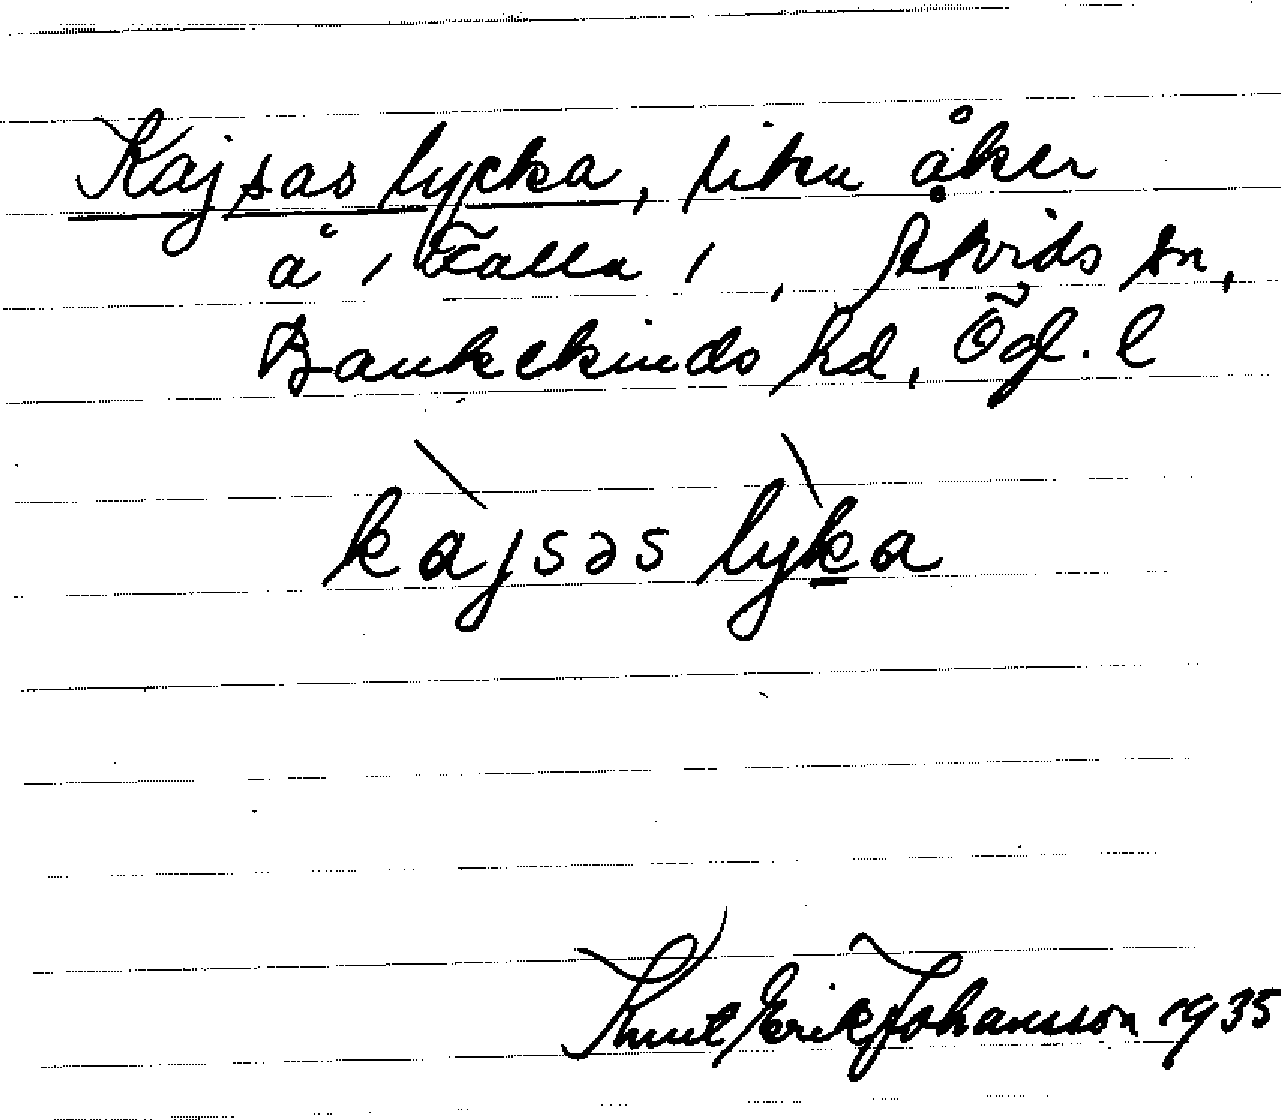 Kajsas lycka, liten åker
å / Falla / , Åtvids sn,
Bankekinds hd, Ög. l
kajsəs lyka
Knut Erik Johansson 1935